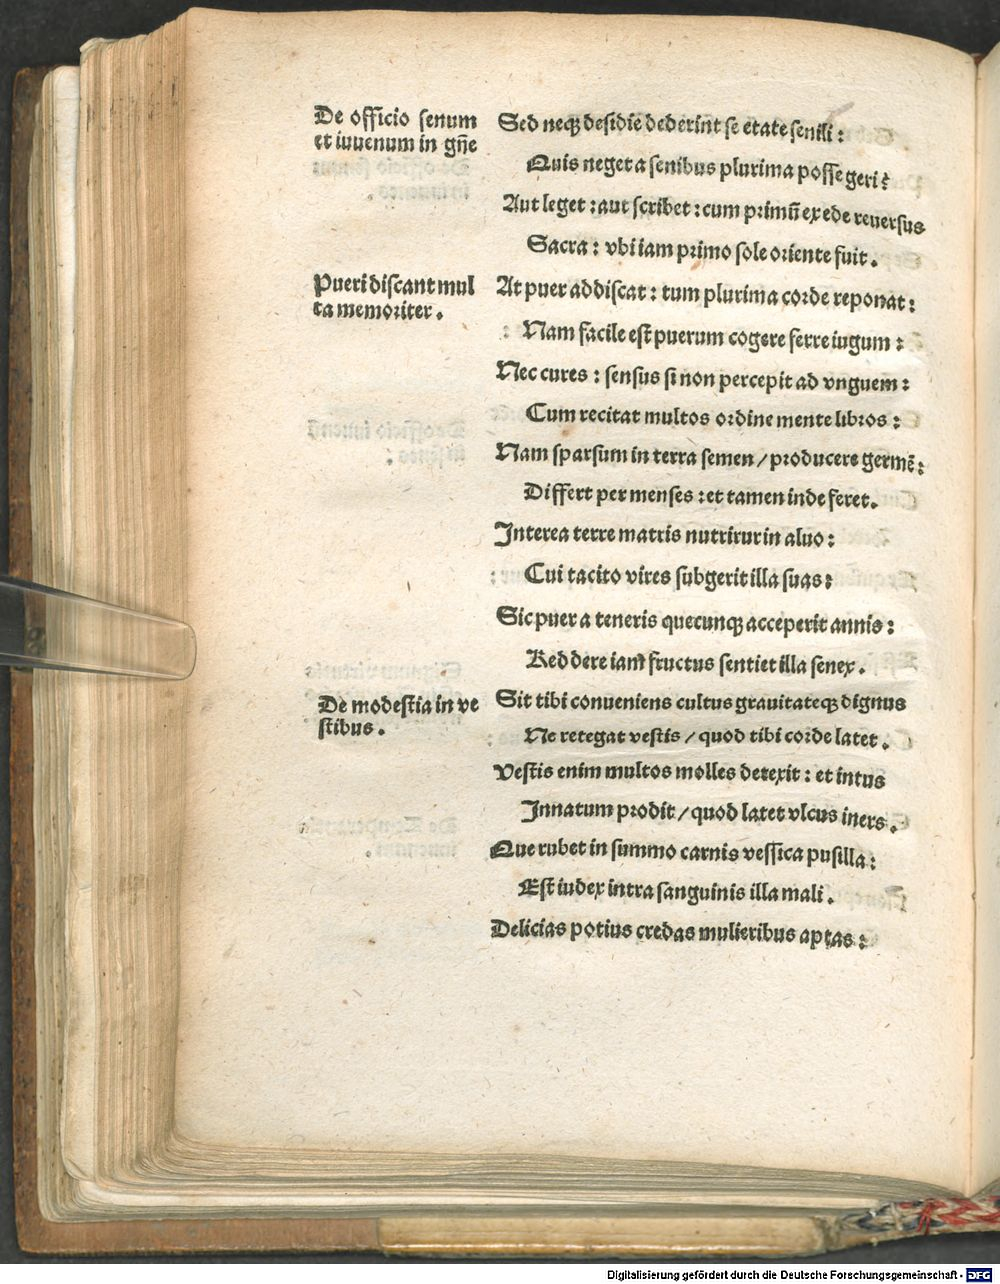 De officio senum
et iuuenum in gn̄e
Sed neqꝫ desidie dederint se etate senili :
Quis neget a senibus plurima posse geri?
Aut leget : aut scribet : cum primū ex ede reuersus
Sacra : vbi iam primo sole oriente fuit .
Pueri discant mul
ta memoriter .
At puer addiscat : tum plurima corde reponat :
Nam facile est puerum cogere ferre iugum :
Nec cures : sensus si non percepit ad vnguem :
Cum recitat multos ordine mente libros :
Nam sparsum in terra semen / producere germē :
Differt per menses : et tamen inde feret .
Interea terre matris nutrirur in aluo :
Cui tacito vires subgerit illa suas :
Sic puer a teneris quecunqꝫ acceperit annis :
Reddere iam fructus sentiet illa senex .
De modestia in ve
stibus .
Sit tibi conueniens cultus grauitateqꝫ dignus
Ne retegat vestis / quod tibi corde latet .
Vestis enim multos molles detexit : et intus
Innatum prodit / quod latet vlcus iners .
Que rubet in summo carnis vessica pusilla :
Est iudex intra sanguinis illa mali .
Delicias potius credas mulieribus aptas :
Digitalisierung gefördert durch die Deutsche Forschungsgemeinschaft - DFG